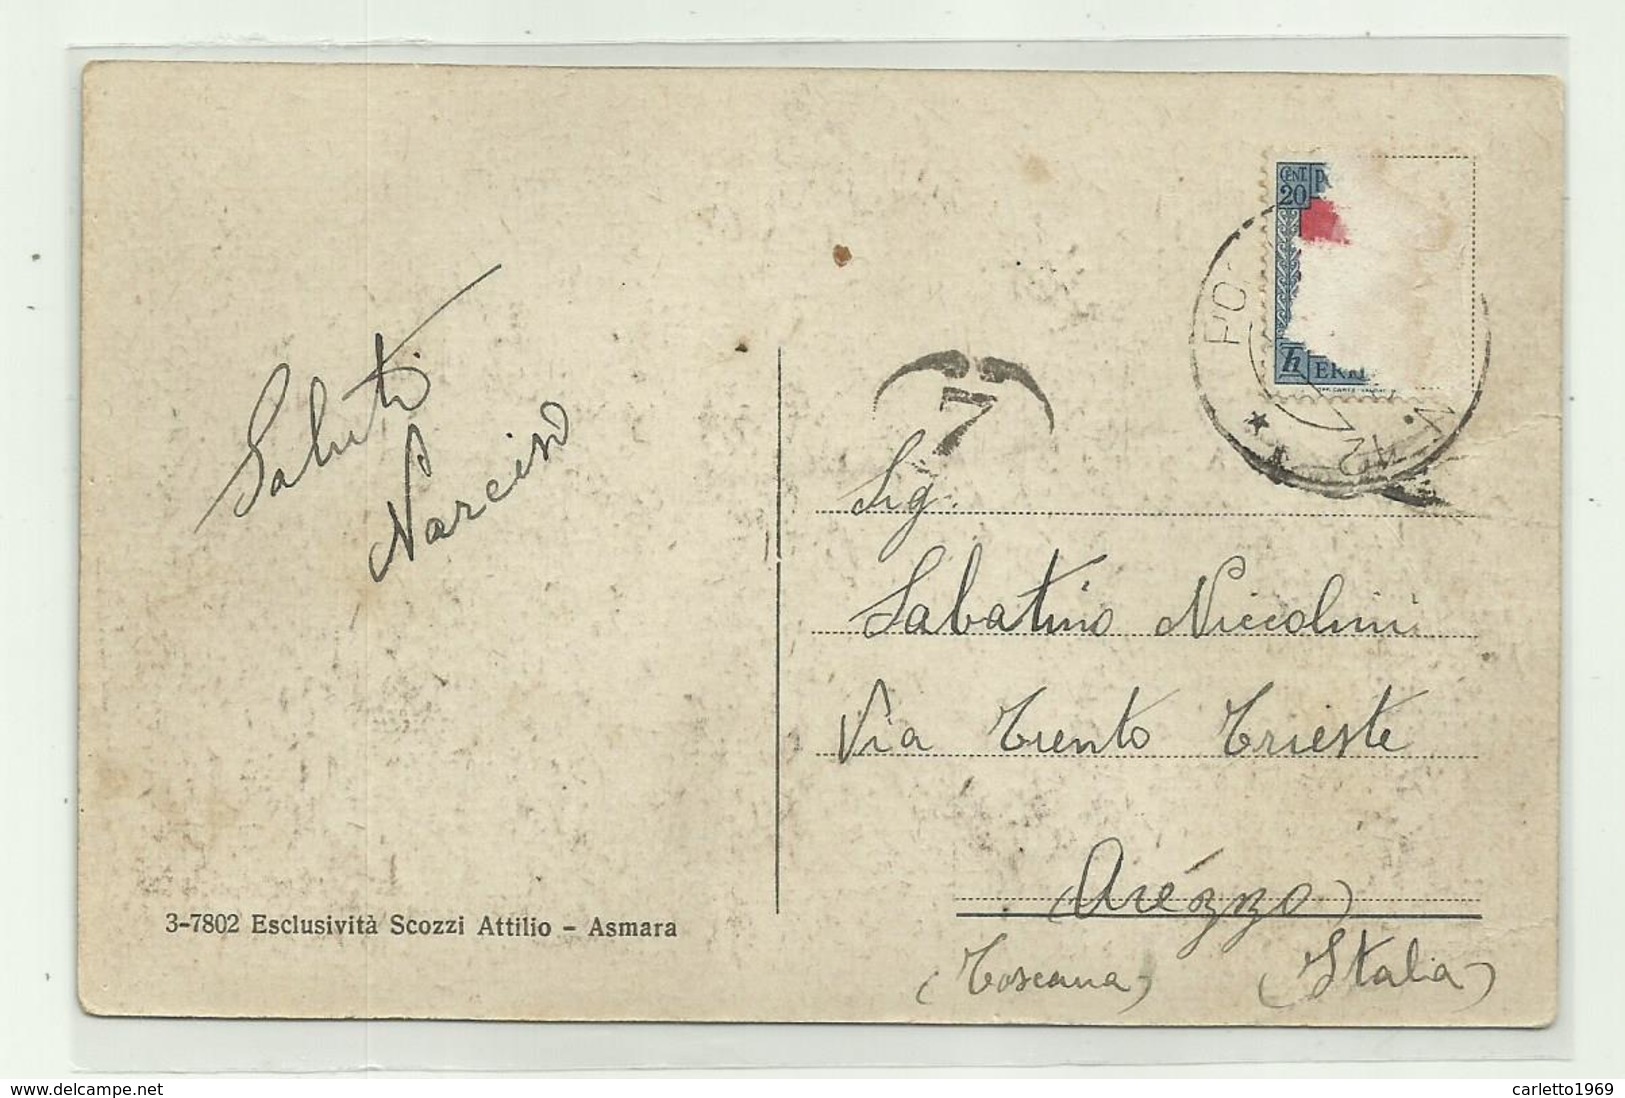 Saluti
Narciso
CENT.
20
ERI
PO
N. 12
7
Sig.
Sabatino Niccolini
Via Trento Trieste
(Arezzo)
(Toscana) (Italia)
3-7802 Esclusività Scozzi Attilio - Asmara
www.delcampe.net
carletto1969